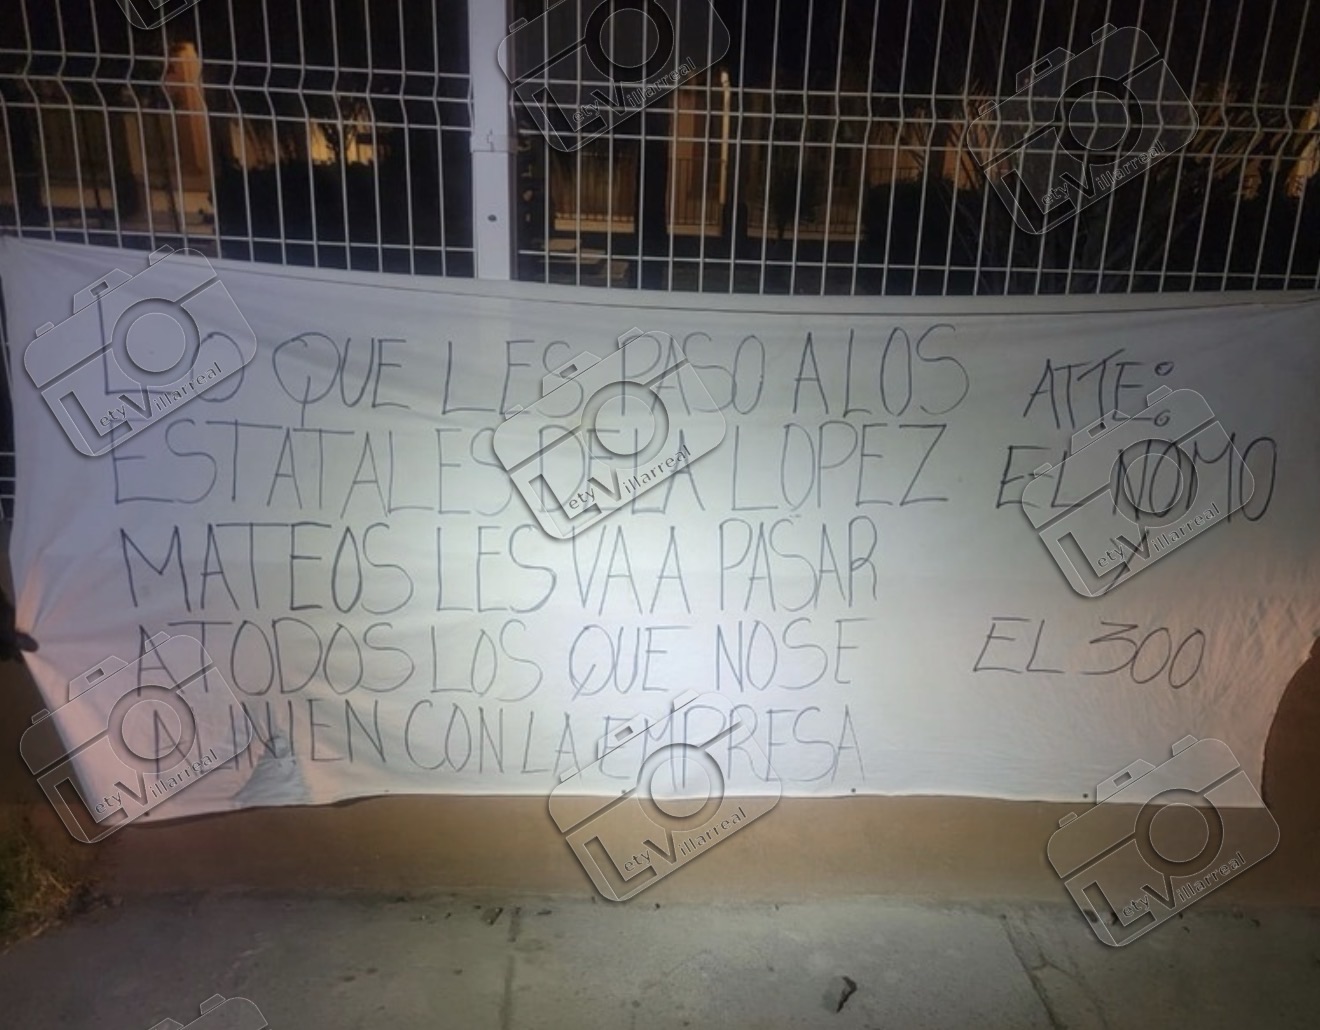 LO QUE LES PASO A LOS
ESTATALES DE LA LOPEZ
MATEOS LES VA A PASAR
A TODOS LOS QUE NO SE
ALINIEN CON LA EMPRESA
ATTE:
EL NOMO
Y
EL 300
Lety Villarreal
Lety Villarreal
Lety Villarreal
Lety Villarreal
Lety Villarreal
Lety Villarreal
Lety Villarreal
Lety Villarreal
Lety Villarreal